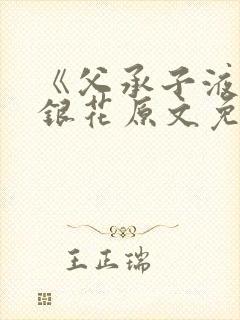 《父承子液
銀花原文免
王正瑞